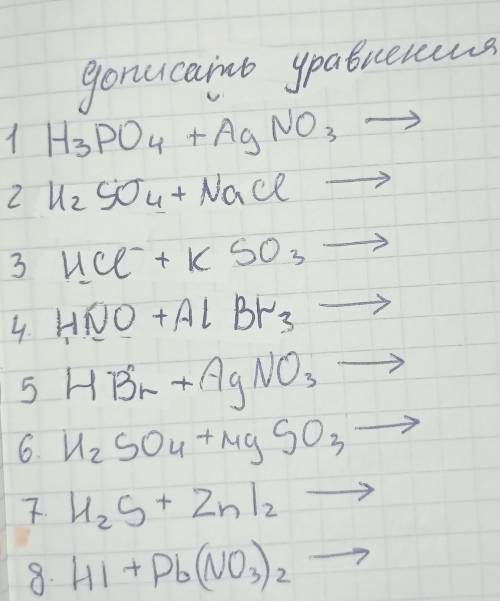 дописать уравнения
1 H3PO4 + AgNO3 →
2 H2SO4 + NaCl →
3 HCl + K SO3 →
4. HNO + Al Br3 →
5 HBr + AgNO3 →
6. H2SO4 + Mg SO3 →
7. H2S + ZnI2 →
8. HI + Pb(NO3)2 →